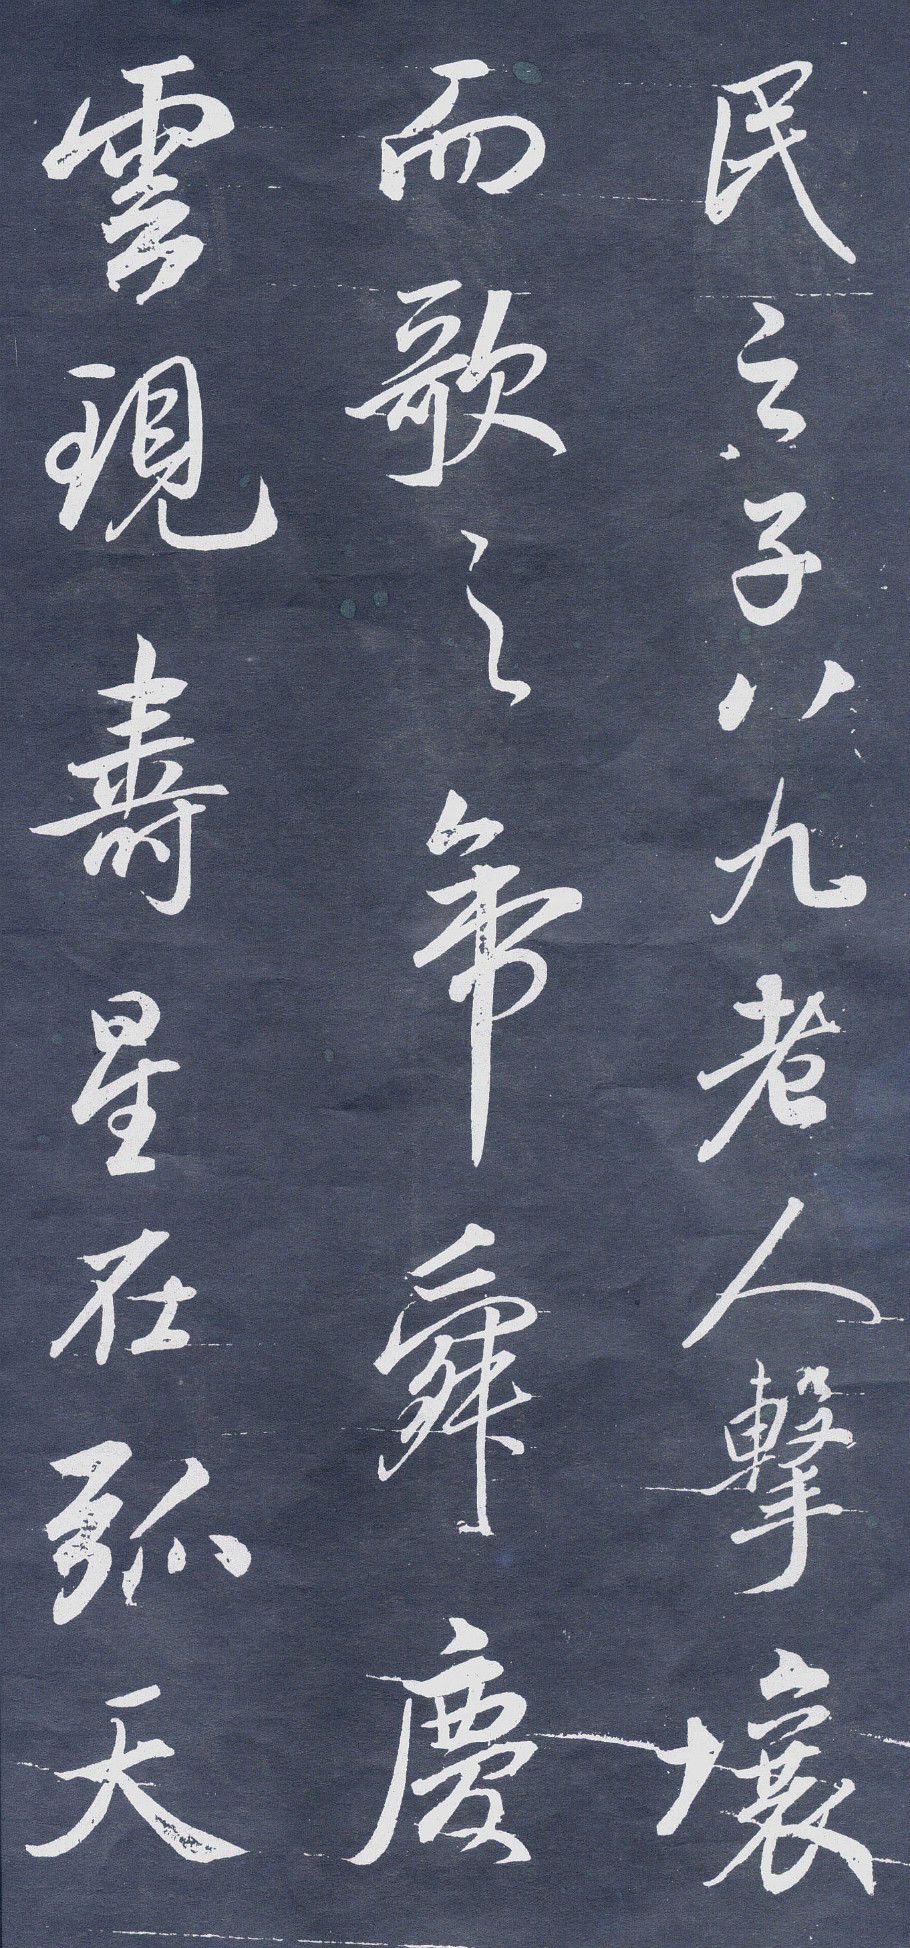 民子八九老人擊壤
而歌之帝舜慶
雲現壽星在弧天